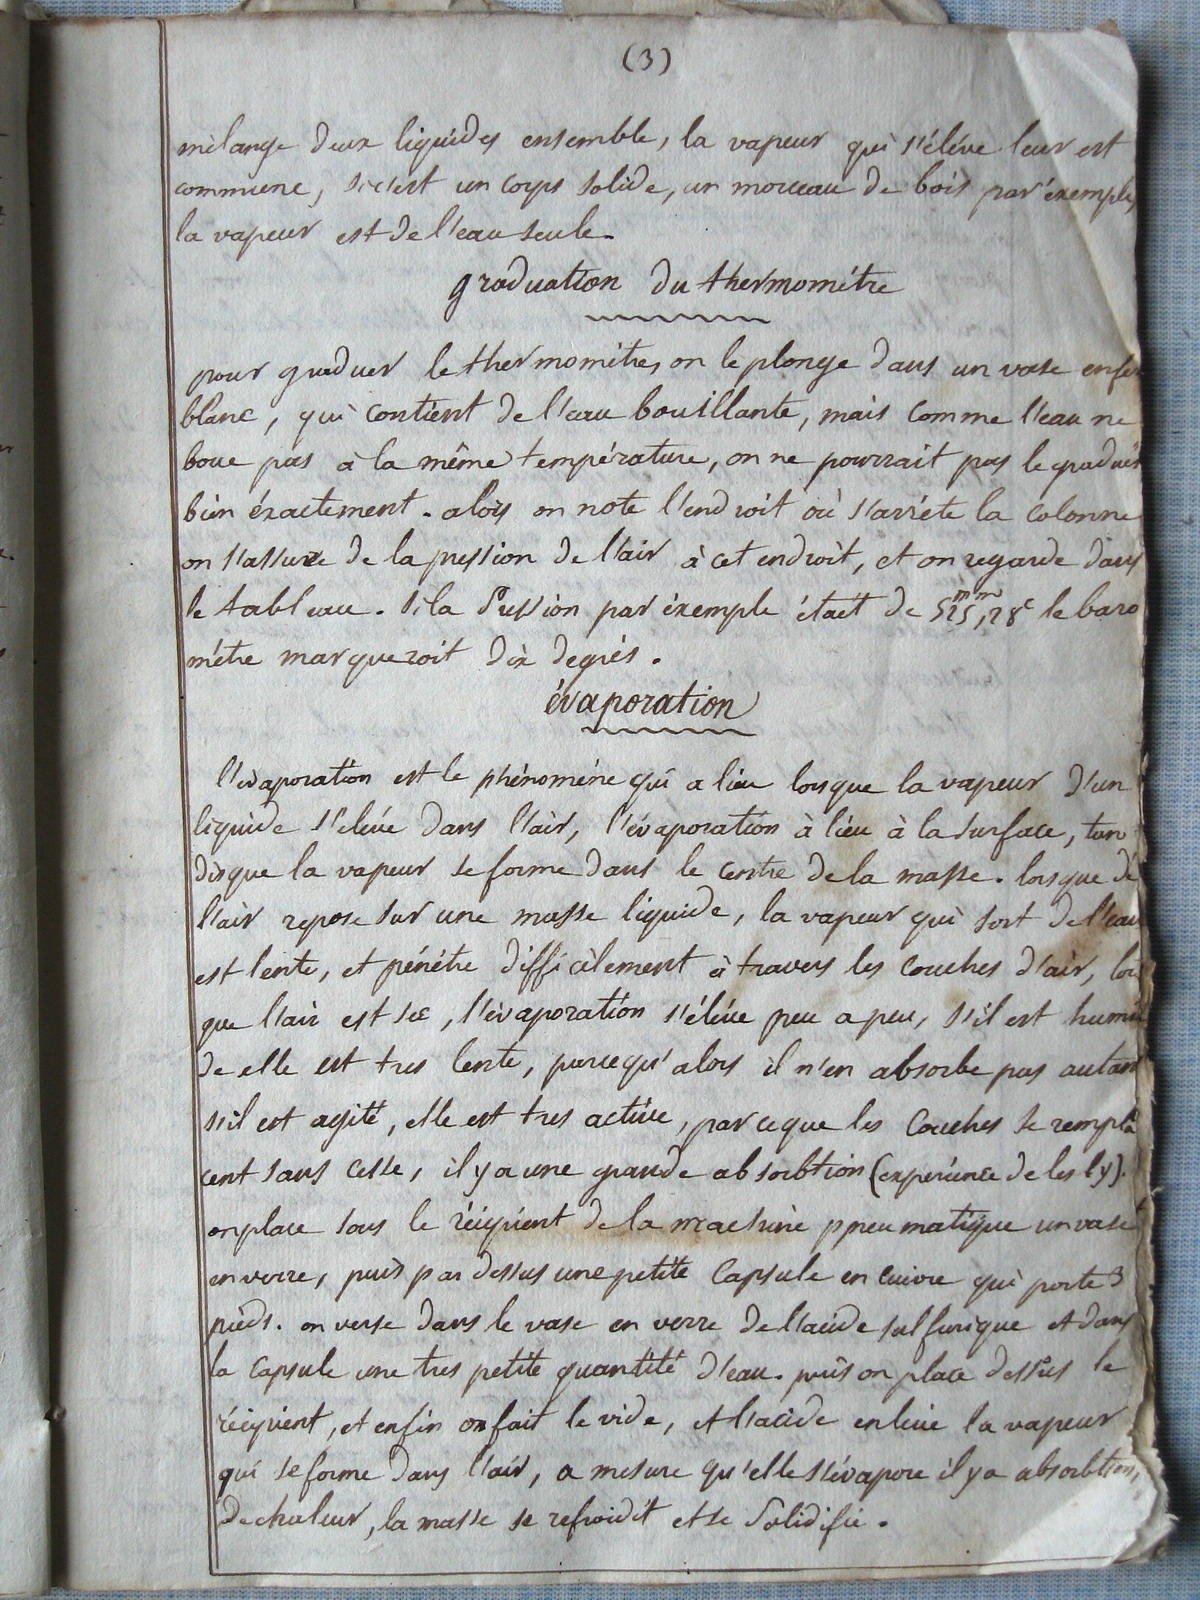 (3)
mèlange deux liquides ensemble, la vapeur qui s'éléve leur est
commune, si c'est un corps solide, un morceau de bois par exemple,
la vapeur est de l'eau seule.
graduation du thermométre
pour graduer le thermométre, on le plonge dans un vase en fer
blanc, qui contient de l'eau bouillante, mais comme l'eau ne
boue pas à la même température, on ne pourrait pas le graduer
bien éxactement. alors on note l'endroit où s'arréte la colonne
on s'assure de la pression de l'air à cet endroit, et on regarde dans
le tableau. si la Pression par éxemple était de le baro
métre marqueroit dix degrés.
évaporation
l'évaporation est le phénoméne qui a lieu lorsque la vapeur d'un
liquide s'eléve dans l'air, l'évaporation à lieu à la surface, tan
disque la vapeur se forme dans le centre de la masse. lorsque de
l'air repose sur une masse liquide, la vapeur qui sort de l'eau
est lente, et pénétre difficilement à travers les couches d'air, lors
que l'air est sec, l'évaporation s'éléve peu a peu, s'il est humi
de elle est tres lente, parcequ'alors il n'en absorbe pas autant
s'il est agité, elle est tres active, parceque les couches se rempla
cent sans cesse, il y a une grande absorbtion (expérience de lesly).
on place sous le récipient de la machine pneumatique un vase
en verre, puis par dessus une petite capsule en cuivre qui porte 3
pieds. on verse dans le vase en verre de l'acide sulfurique et dans
la capsule une tres petite quantité d'eau. puis on place dessus le
récipient, et enfin on fait le vide, et l'acide enléve la vapeur
qui se forme dans l'air, a mesure qu'elle s'évapore il y a absorbtion,
de chaleur, la masse se refroidit et se solidifie.